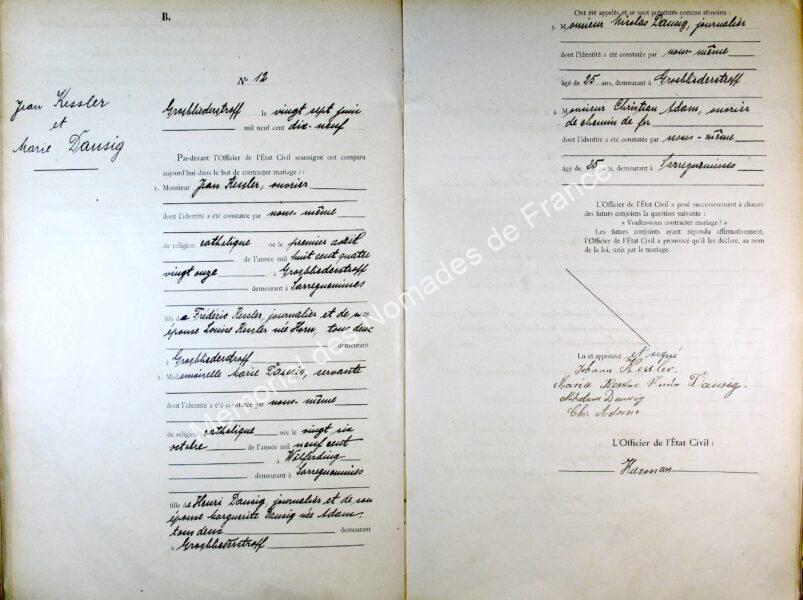 B.
Nº 12
Jean Kessler
et
Marie Dausig
Grosbliederstroff le vingt sept juin
mil neuf cent dix-neuf
Par-devant l'Officier de l'État Civil soussigné ont comparu
aujourd'hui dans le but de contracter mariage :-
1. Monsieur Jean Kessler, ouvrier
dont l'identité a été constatée par nous-même
de religion catholique né le premier avril
de l'année mil huit cent quatre
vingt onze à Grosbliederstroff
demeurant à Sarreguemines
fils de Frédéric Kessler, journalier et de son
épouse Louise Kessler née Horn, tous deux
demeurant
à Grosbliederstroff
2. Mademoiselle Marie Dausig, servante
dont l'identité a été constatée par nous-même
de religion catholique née le vingt six
octobre de l'année mil neuf cent
à Wölferding
demeurant à Sarreguemines
fille de Henri Dausig, journalier et de son
épouse Marguerite Dausig née Adam,
tous deux demeurant
à Grosbliederstroff
Ont été appelés et se sont présentés comme témoins :
3. Monsieur Nicolas Dausig, journalier
dont l'identité a été constatée par nous-même
âgé de 25 ans, demeurant à Grosbliederstroff
4. Monsieur Christian Adam, ouvrier
de chemin de fer
dont l'identité a été constatée par nous-même
âgé de 25 ans, demeurant à Sarreguemines
L'Officier de l'État Civil a posé successivement à chacun
des futurs conjoints la question suivante :
« Voulez-vous contracter mariage ? »
Les futurs conjoints ayant répondu affirmativement,
l'Officier de l'État Civil a prononcé qu'il les déclare, au nom
de la loi, unis par le mariage.
Lu et approuvé et signé
Johann Kessler.
Maria Kessler Dausig.
Nikolaus Dausig
Chr. Adam
L'Officier de l'État Civil :
Herman
Memorial des Nomades de France